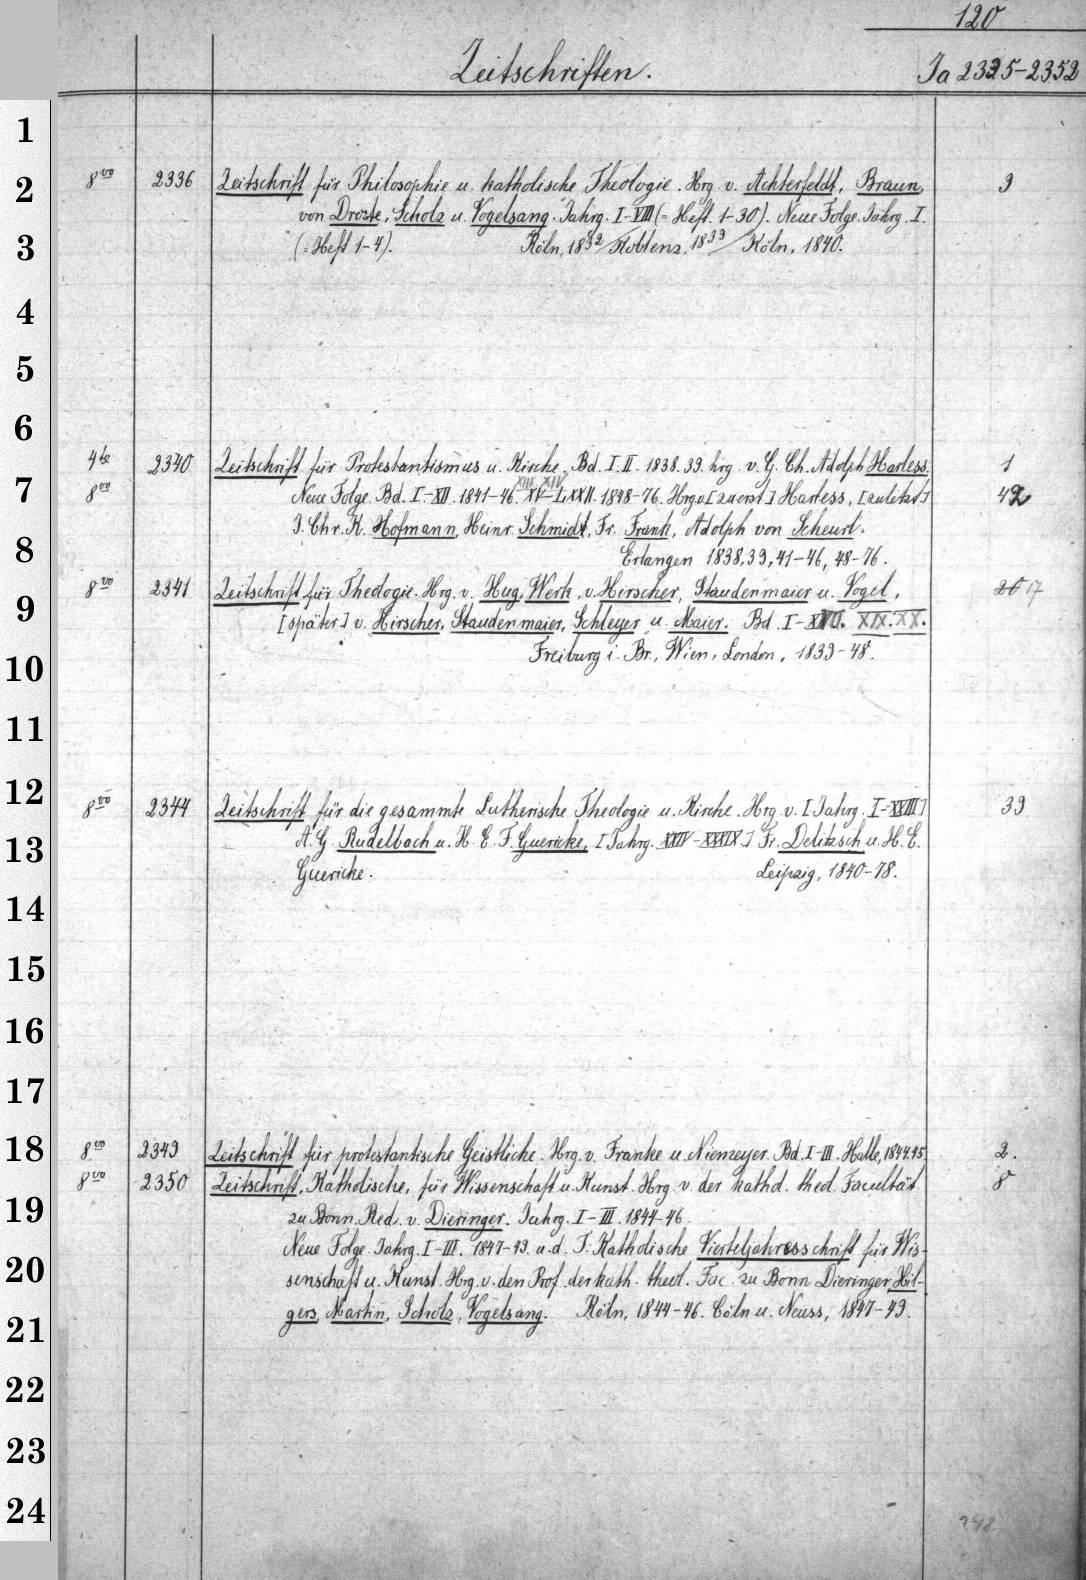 120
Zeitschriften. Ja 2325-2352
1
8vo 2336 Zeitschrift für Philosophie u. katholische Theologie. Hrg. v. Achterfeldt, Braun, 9
2
von Droste, Scholz u. Vogelsang. Jahrg. I-VIII (= Heft. 1-30). Neue Folge. Jahrg. I.
3
(= Heft 1-4). Köln, 1832 / Koblenz, 1833 / Köln, 1840.
4
5
6
4to 2340 Zeitschrift für Protestantismus u. Kirche. Bd. I. II. 1838. 39. hrg. v. G. Ch. Adolph Harless. 1
XIII. XIV
7
8vo Neue Folge. Bd. I-XII. 1841-46. XV-LXXII. 1848-76. Hrg. v. [zuerst] Harless, [zuletzt] 42
J. Chr. K. Hofmann, Heinr. Schmidt, Fr. Frank, Adolph von Scheurl.
8
Erlangen 1838, 39, 41-46, 48-76.
8vo 2341 Zeitschrift für Theologie. Hrg. v. Hug, Werk, v. Hirscher, Staudenmaier u. Vogel, 20 17
9
[später] v. Hirscher, Staudenmaier, Schleyer u. Maier. Bd. I- XIX. XX.
Freiburg i. Br., Wien, London, 1839-48.
10
11
12
8vo 2344 Zeitschrift für die gesammte Lutherische Theologie u. Kirche. Hrg. v. [Jahrg. I-XXIII] 39
13
A. G. Rudelbach u. H. E. F. Guericke, [Jahrg. XXIV-XXXIX] Fr. Delitzsch u. H. E.
Guericke. Leipzig, 1840-78.
14
15
16
17
18
8vo 2349 Zeitschrift für protestantische Geistliche. Hrg. v. Franke u. Niemeyer. Bd. I-III. Halle, 1844.45. 2.
8vo 2350 Zeitschrift, Katholische, für Wissenschaft u. Kunst. Hrg. v. der kathol. theol. Facultät 8
19
zu Bonn. Red. v. Dieringer. Jahrg. I-III. 1844-46.
Neue Folge. Jahrg. I-III. 1847-49. u. d. T: Katholische Vierteljahresschrift für Wis-
20
senschaft u. Kunst. Hrg. v. den Prof. der kath. theol. Fac. zu Bonn Dieringer, Hil-
21
gers, Martin, Scholz, Vogelsang. Köln, 1844-46. Cöln u. Neuss, 1847-49.
22
23
24
248